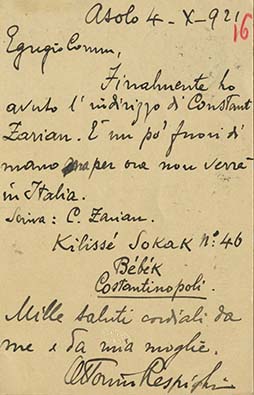 Asolo 4-X-921
16
Egregio Comm,
Finalmente ho
avuto l'indirizzo di Constant
Zarian. È un po' fuori di
mano ma per ora non verrà
in Italia.
Scriva: C. Zarian.
Kilissé Sokak Nº 46
Bébék
Costantinopoli.
Mille saluti cordiali da
me e da mia moglie.
Ottorino Respighi